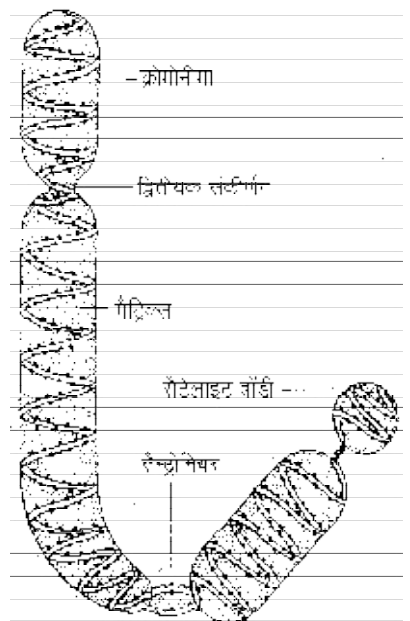 क्रोमोनीमा
द्वितीयक संकीर्णन
मैट्रिक्स
सैटेलाइट बॉडी
सेन्ट्रोमियर